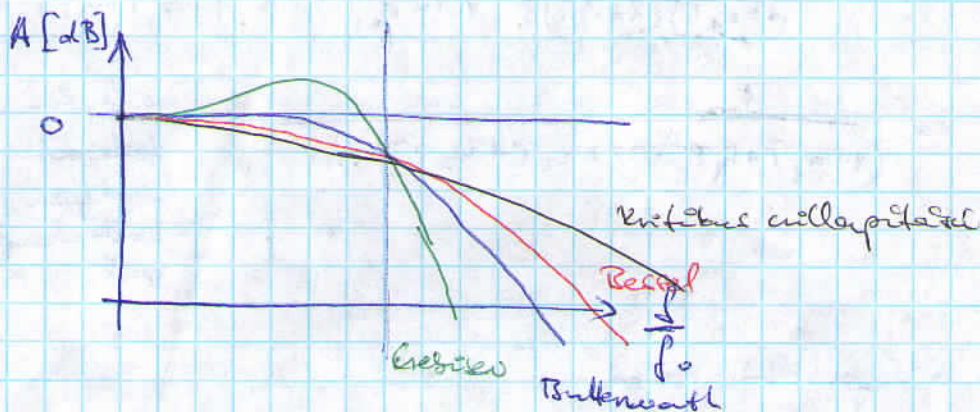 A [dB]
0
Kritikus csillapítású
Bessel
f
f₀
Csebisev
Butterworth